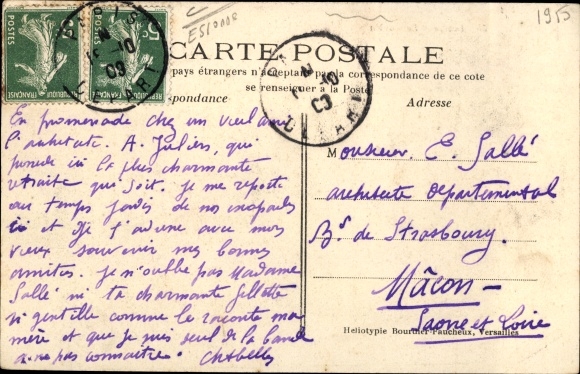 1915
ES10008
POSTES
POSTES
5c
REPUBLIQUE FRANÇAISE
CARTE POSTALE
pays étrangers n'acceptent pas la correspondance de ce côté
se renseigner à la Poste
spondance
Adresse
En promenade chez un vieil ami
l'architecte. A. Juliers, qui
possède ici la plus charmante
retraite qui soit. Je me reporte
au temps jadis de nos
ici et je t'adresse avec mon
vieux souvenir mes bonnes
amitiés. Je n'oublie pas Madame
Sallé ni ta charmante fillette
si gentille comme le raconte ma
mère et que je suis seul de la bande
à ne pas connaître.
Monsieur. E. Sallé
architecte départemental
Bd de Strasbourg.
Mâcon -
Saone et Loire
Heliotypie Bourdier-Faucheux, Versailles